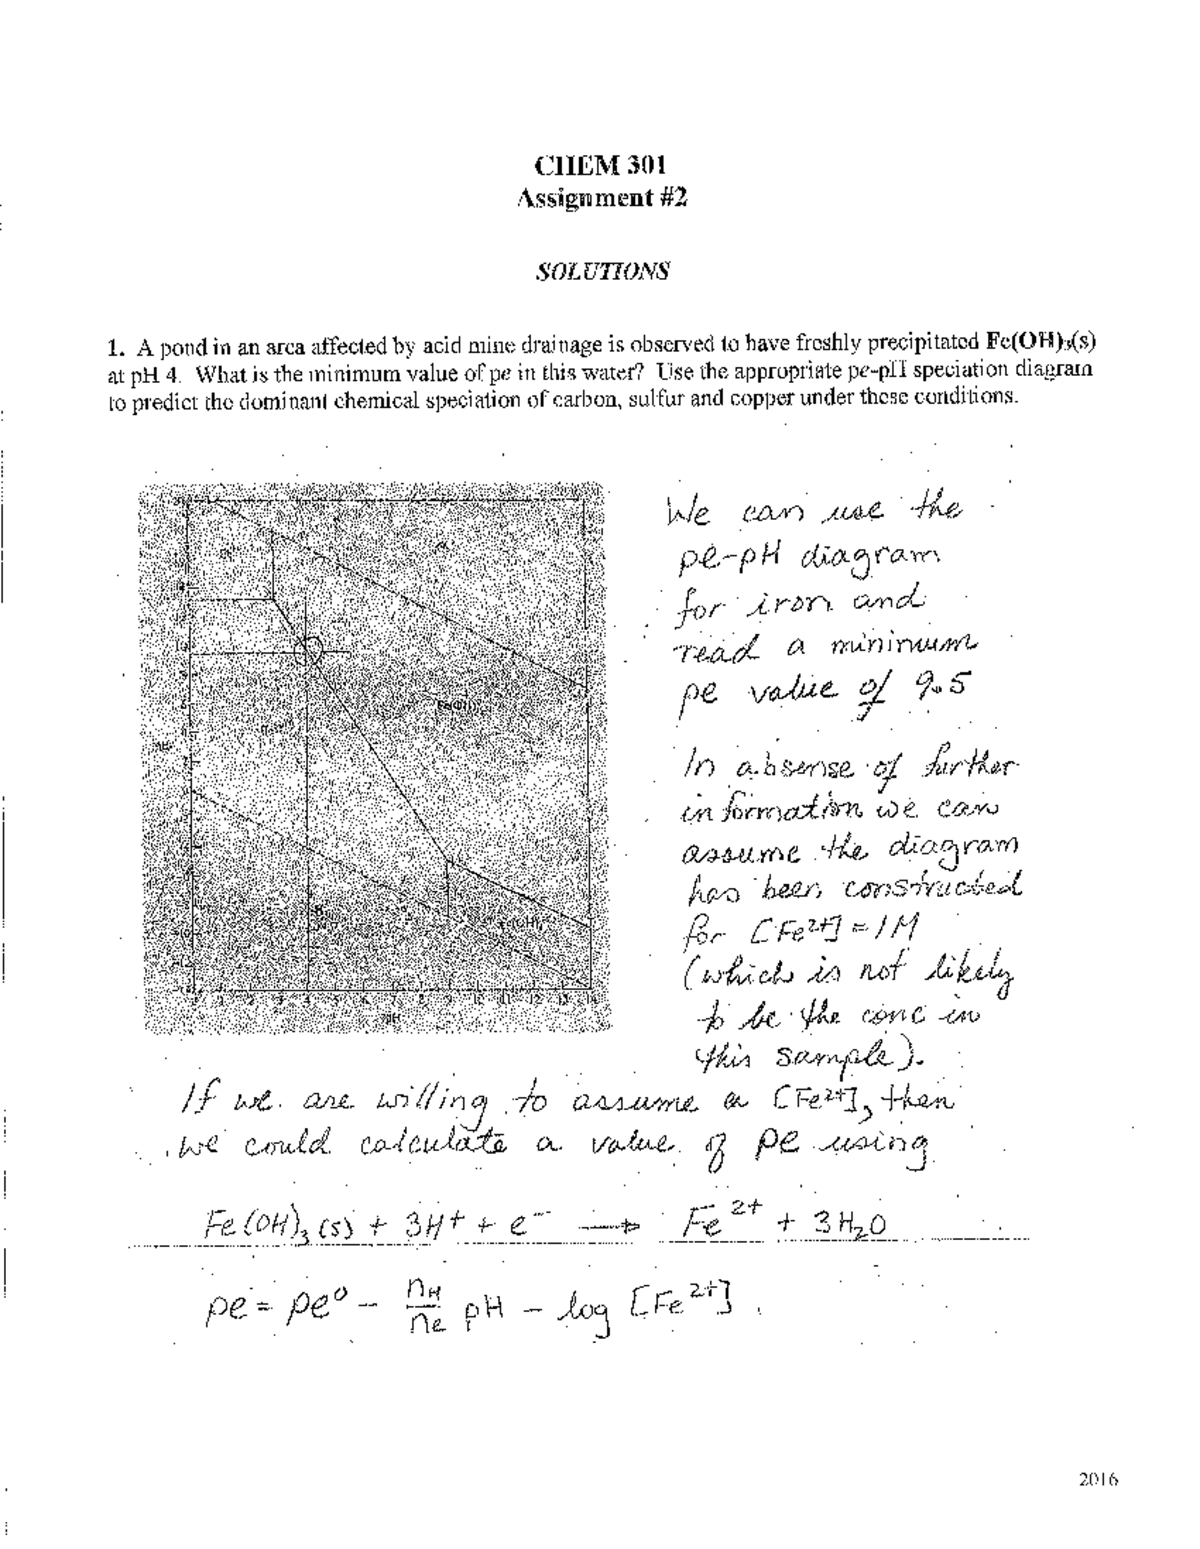 CHEM 301
Assignment #2
SOLUTIONS
1. A pond in an area affected by acid mine drainage is observed to have freshly precipitated Fe(OH)₃(s)
at pH 4. What is the minimum value of pe in this water? Use the appropriate pe-pH speciation diagram
to predict the dominant chemical speciation of carbon, sulfur and copper under these conditions.
We can use the
pe-pH diagram
for iron and
read a minimum
pe value of 9.5
In absense of further
information we can
assume the diagram
has been constructed
for [Fe²⁺] = 1M
(which is not likely
to be the conc in
this sample).
If we are willing to assume a [Fe²⁺], then
we could calculate a value of pe using
Fe(OH)₃(s) + 3H⁺ + e⁻ → Fe²⁺ + 3H₂O
pe = pe⁰ - nH/ne pH - log [Fe²⁺].
2016